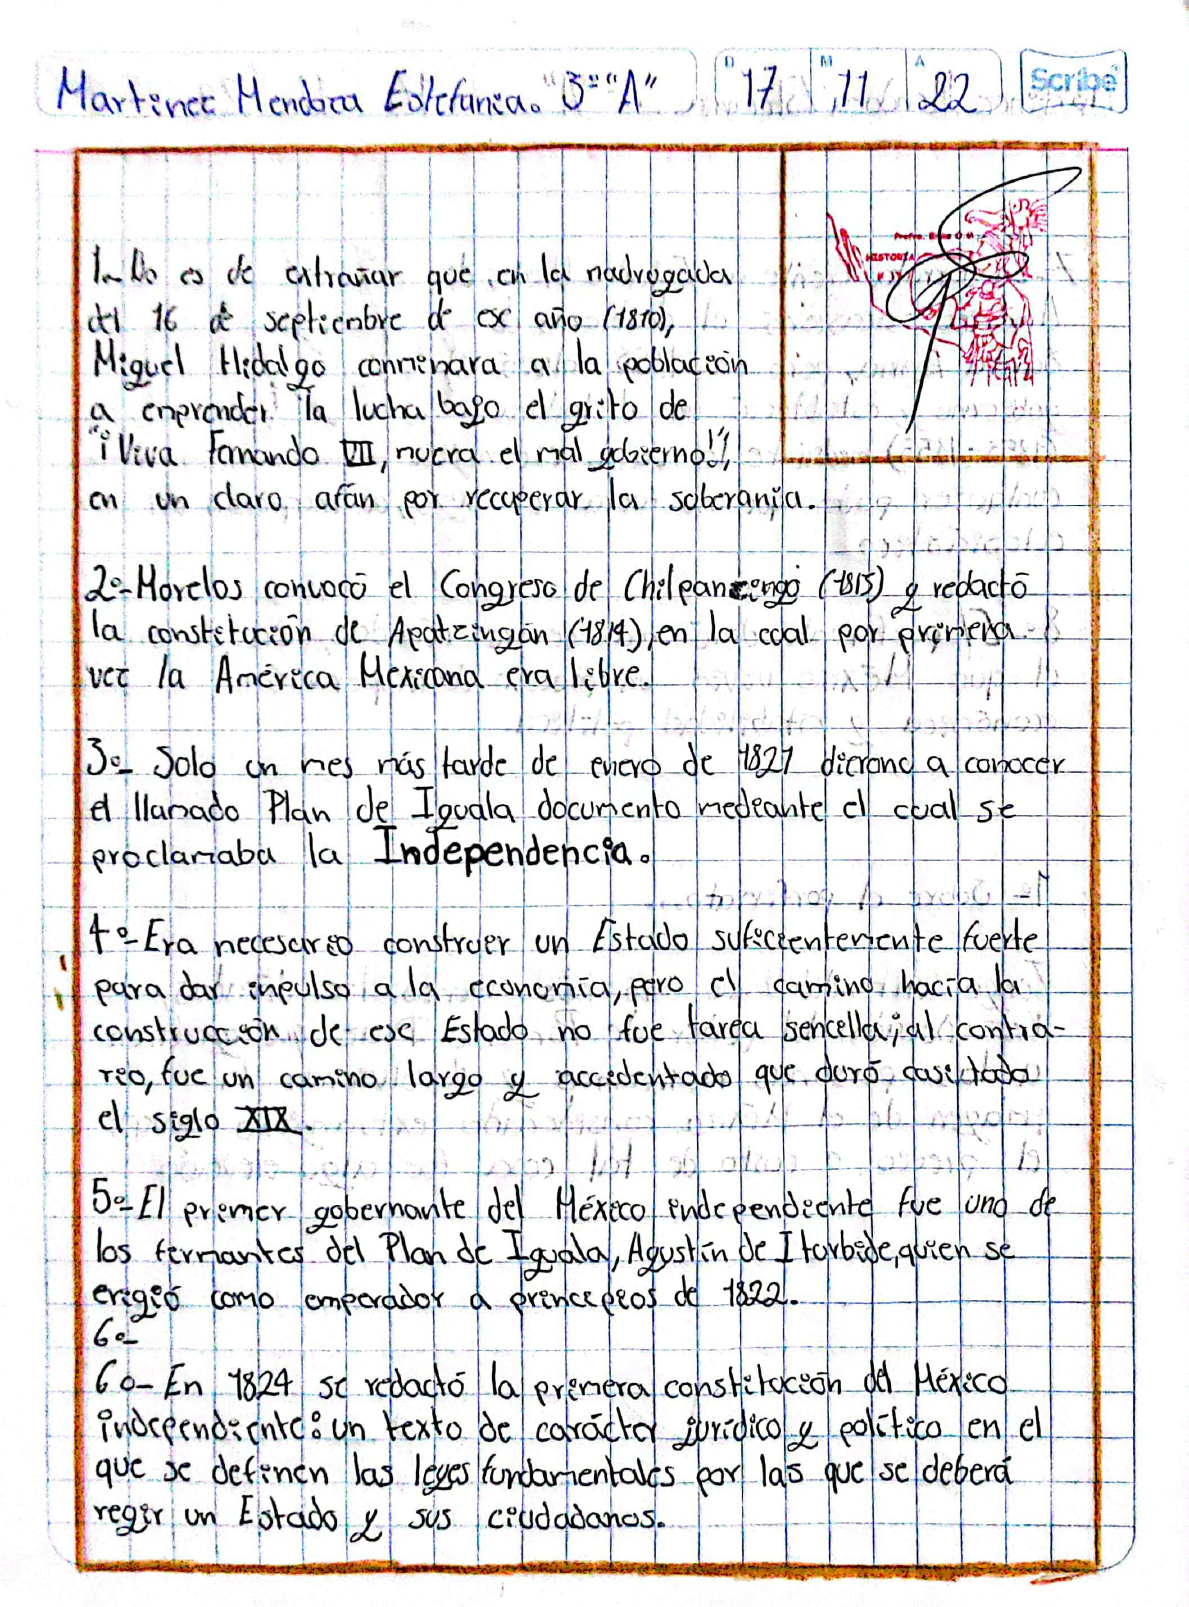 Martinez Mendoza Estefania. "3º "A"
D 17 M 11 A 22
Scribe
HISTORIA
1.- No es de extrañar que en la madrugada
del 16 de septiembre de ese año (1810),
Miguel Hidalgo conminara a la población
a emprender la lucha bajo el grito de
"¡Viva Fernando VII, muera el mal gobierno!",
en un claro afán por recuperar la soberanía.
2º- Morelos convocó el Congreso de Chilpancingo (1813) y redactó
la constitución de Apatzingán (1814), en la cual por primera
vez la América Mexicana era libre.
3º- Solo un mes más tarde de enero de 1821 dierono a conocer
el llamado Plan de Iguala documento mediante el cual se
proclamaba la Independencia.
4º- Era necesario construir un Estado suficientemente fuerte
para dar impulso a la economía, pero el camino hacia la
construcción de ese Estado no fue tarea sencilla; al contra-
rio, fue un camino largo y accidentado que duró casi todo
el siglo XIX.
5º- El primer gobernante del México independiente fue uno de
los firmantes del Plan de Iguala, Agustín de Iturbide, quien se
erigió como emperador a principios de 1822.
6º-
6º- En 1824 se redactó la primera constitución del México
independiente: un texto de carácter jurídico y político en el
que se definen las leyes fundamentales por las que se deberá
regir un Estado y sus ciudadanos.